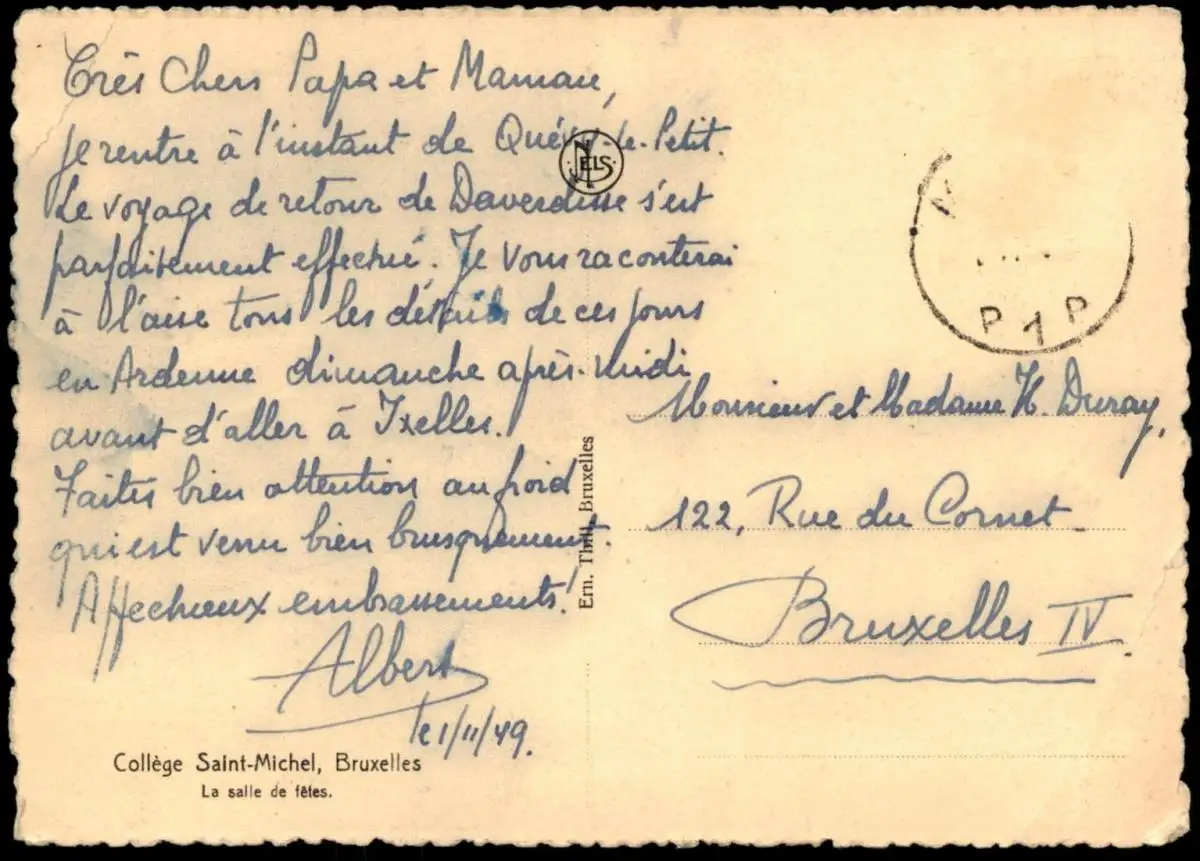 Très Chers Papa et Maman,
je rentre à l'instant de Quévy-le-Petit.
Le voyage de retour de Daverdisse s'est
parfaitement effectué. Je vous raconterai
à l'aise tous les détails de ces jours
en Ardenne dimanche après-midi
avant d'aller à Ixelles.
Faites bien attention au froid
qui est venu bien brusquement.
Affectueux embrassements!
Albert
le 1/11/49.
Collège Saint-Michel, Bruxelles
La salle de fêtes.
NELS
Ern. Thill, Bruxelles
P 1 P
Monsieur et Madame H. Duray,
122, Rue du Cornet
Bruxelles IV.